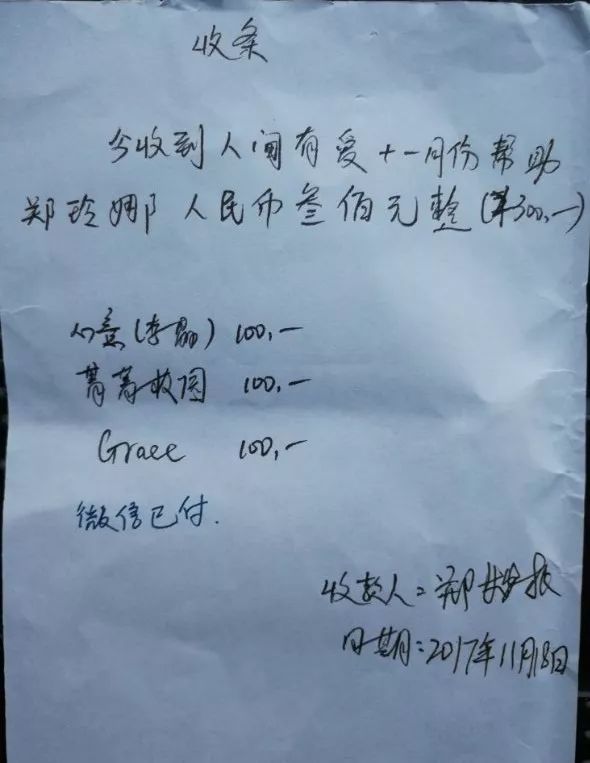 收条
今收到人间有爱十一月份帮助
郑玲娜人民币叁佰元整(¥300,一)
心意(李晶) 100,一
菁菁校园 100,一
Grace 100,一
微信已付.
收款人:郑
日期:2017年11月18日